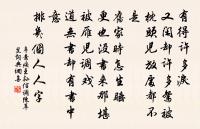 有得許多淚
又閑却許多鴛被
枕頭兒放處都不
是
舊家時怎生睡
更也沒書來那堪
被雁兒調戲
道無書却有書中
意
排幾個人人字
辛棄疾王孫信調陳莘
叟